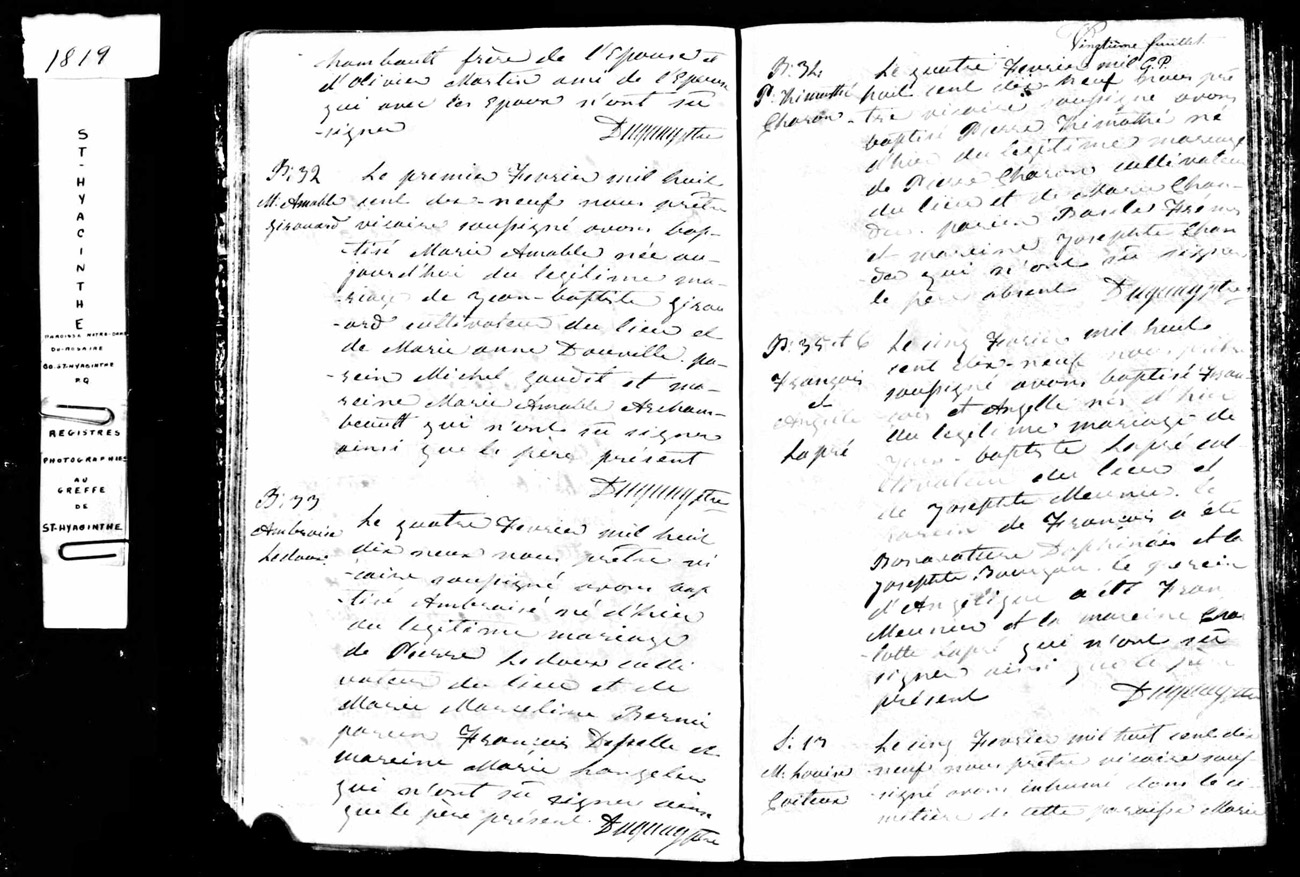 1819
ST-HYACINTHE
PAROISSE NOTRE-DAME
DU-ROSAIRE
CO. ST-HYACINTHE
P.Q
REGISTRES
PHOTOGRAPHIES
AU
GREFFE
DE
ST-HYACINTHE
-hambault frère de l'Epouse et
d'Olivier Martin ami de l'Epoux
qui avec les Epoux n'ont su
-signer
Duquay ptre
B: 32
M. Amable
Girouard
Le premier Fevrier mil huit
cent dix-neuf nous prêtre
vicaire soussigné avons bap-
-tisé Marie Amable née au-
jourdhui du legitime ma-
-riage de Jean-baptiste Girou
-ard cultivateur du lieu et
de Marie anne Douville pa-
-rein Michel Gaudet et ma-
-reine Marie Amable Archam-
beault qui n'ont su signer
ainsi que le père présent
Duquay ptre
B: 33
Ambroise
Ledoux
Le quatre Fevrier mil huit
dix neuf nous prêtre vi
-caire soussigné avons bap
-tisé Ambroise né d'hier
du legitime mariage
de Pierre Ledoux culti
vateur du lieu et de
Marie Marceline Berni
parein François
mareine Marie Langelier
qui n'ont su signer ainsi
que le père présent. Duquay ptre
Vingtième feuillet
G.P.
B: 34
P. Thimothé
Charon
Le quatre Fevrier mil
huit cent dix neuf nous prê
-tre vicaire soussigné avons
baptisé Pierre Thimothé né
d'hier du legitime mariage
de Pierre Charon cultivateur
du lieu et de Marie Chou-
parein Basile
et mareine Josephte
qui n'ont su signer
le père absent Duquay ptre
B: 35 et 6
François
et
Angèle
Lapré
Le cinq Fevrier mil huit
cent dix-neuf nous prêtre
soussigné avons baptisé Fran-
-çois et Angelle nés d'hier
du legitime mariage de
Jean-baptiste Lapré cul
-tivateur du lieu et
de Josephte Meunier. le
parein de François a été
Bonavature et la
Josephte. le parein
d'Angélique a été Fran
Meunier et la mareine Cha
-lotte Lapré qui n'ont su
signer ainsi que le père
présent Duquay ptre
S: 17
M. Louise
Le cinq Fevrier mil huit cent dix
-neuf nous prêtre vicaire sous-
-signé avons inhumé dans le ci-
-metière de cette paroisse Marie